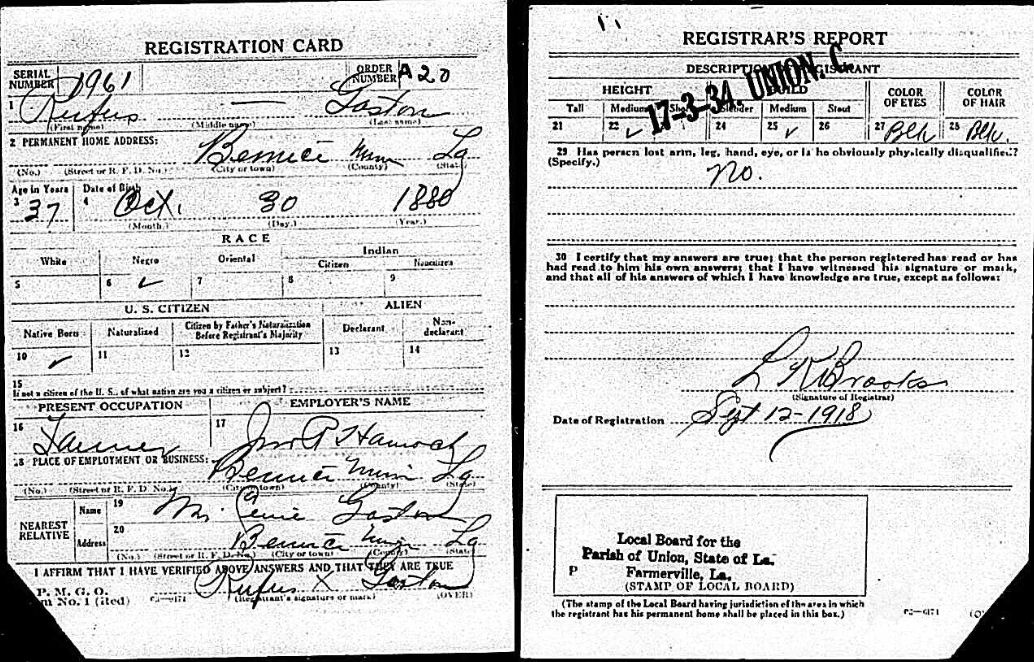 REGISTRATION CARD
SERIAL NUMBER 1961 ORDER NUMBER A20
1 Rufus — Gaston
(First name) (Middle name) (Last name)
2 PERMANENT HOME ADDRESS:
Bernice Union La
(No.) (Street or R. F. D. No.) (City or town) (County) (State)
Age in Years Date of Birth
3 37 4 Oct. 30 1880
(Month.) (Day.) (Year.)
RACE
White Negro Oriental Indian
Citizen Noncitizen
5 6 ✓ 7 8 9
U. S. CITIZEN ALIEN
Native Born Naturalized Citizen by Father's Naturalization Before Registrant's Majority Declarant Non-declarant
10 ✓ 11 12 13 14
15
If not a citizen of the U. S., of what nation are you a citizen or subject?
PRESENT OCCUPATION EMPLOYER'S NAME
16 Farmer 17
18 PLACE OF EMPLOYMENT OR BUSINESS:
Bernice Union La
(No.) (Street or R. F. D. No.) (City or town) (County) (State)
NEAREST RELATIVE
Name 19 Gaston
Address 20 Bernice Union La
(No.) (Street or R. F. D. No.) (City or town) (County) (State)
I AFFIRM THAT I HAVE VERIFIED ABOVE ANSWERS AND THAT THEY ARE TRUE
P. M. G. O.
m No. 1 (Red) Rufus X Gaston
(Registrant's signature or mark) (OVER)
REGISTRAR'S REPORT
17-3-34. UNION. C
DESCRIPTION OF REGISTRANT
HEIGHT BUILD COLOR OF EYES COLOR OF HAIR
Tall Medium Short Slender Medium Stout
21 22 ✓ 24 25 ✓ 26 27 Blk 28 Blk.
29 Has person lost arm, leg, hand, eye, or is he obviously physically disqualified?
(Specify.)
No.
30 I certify that my answers are true; that the person registered has read or has
had read to him his own answers; that I have witnessed his signature or mark,
and that all of his answers of which I have knowledge are true, except as follows:
L K Brooks
(Signature of Registrar)
Date of Registration Sept 12-1918
Local Board for the
Parish of Union, State of La.
P Farmerville, La.
(STAMP OF LOCAL BOARD)
(The stamp of the Local Board having jurisdiction of the area in which
the registrant has his permanent home shall be placed in this box.)